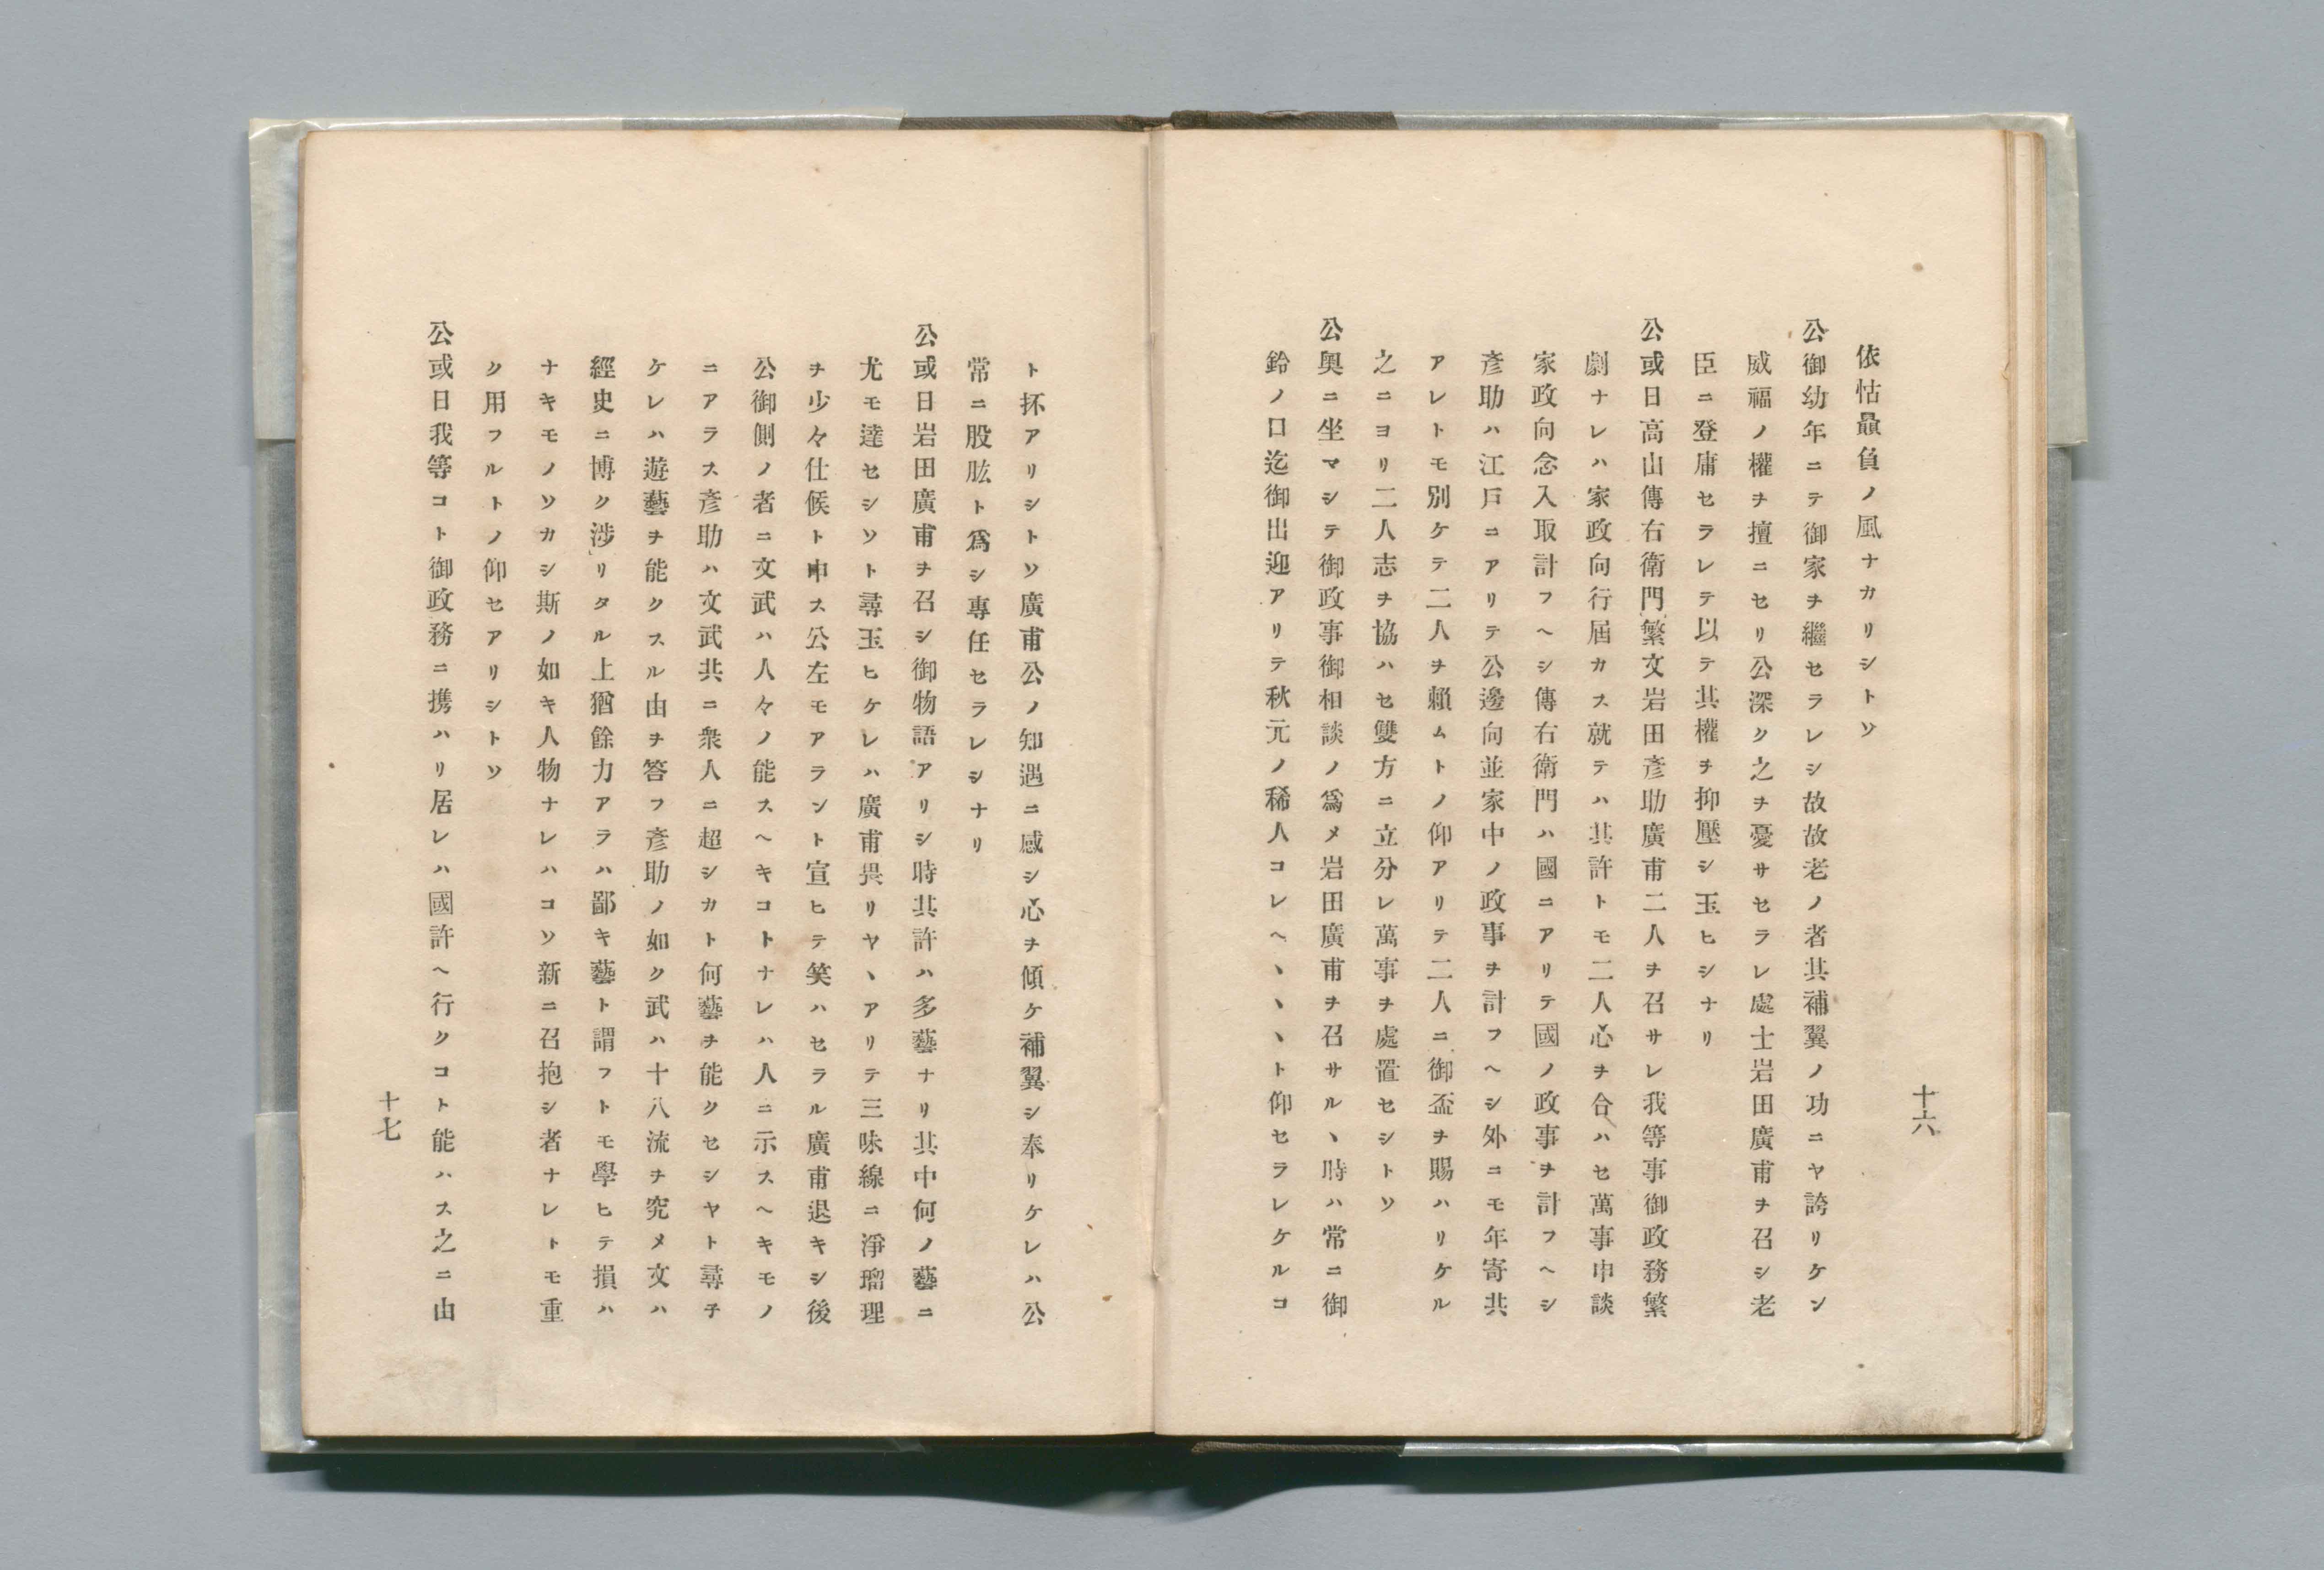 十六
依怙贔負ノ風ナカリシトソ
公御幼年ニテ御家ヲ繼セラレシ故故老ノ者其補翼ノ功ニヤ誇リケン
威福ノ權ヲ擅ニセリ公深ク之ヲ憂サセラレ處士岩田廣甫ヲ召シ老
臣ニ登庸セラレテ以テ其權ヲ抑壓シ玉ヒシナリ
公或日高山傳右衛門繁文岩田彥助廣甫二人ヲ召サレ我等事御政務繁
劇ナレハ家政向行屆カス就テハ其許トモ二人心ヲ合ハセ萬事申談
家政向念入取計フヘシ傳右衛門ハ國ニアリテ國ノ政事ヲ計フヘシ
彥助ハ江戸ニアリテ公邊向並家中ノ政事ヲ計フヘシ外ニモ年寄共
アレトモ別ケテ二人ヲ賴ムトノ仰アリテ二人ニ御盃ヲ賜ハリケル
之ニヨリ二人志ヲ協ハセ雙方ニ立分レ萬事ヲ處置セシトソ
公奧ニ坐マシテ御政事御相談ノ爲メ岩田廣甫ヲ召サル丶時ハ常ニ御
鈴ノ口迄御出迎アリテ秋元ノ稀人コレヘ丶丶丶ト仰セラレケルコ
ト抔アリシトソ廣甫公ノ知遇ニ感シ心ヲ傾ケ補翼シ奉リケレハ公
常ニ股肱ト爲シ專任セラレシナリ
公或日岩田廣甫ヲ召シ御物語アリシ時其許ハ多藝ナリ其中何ノ藝ニ
尤モ達セシソト尋玉ヒケレハ廣甫畏リヤ丶アリテ三味線ニ淨瑠理
ヲ少々仕候ト申ス公左モアラント宣ヒテ笑ハセラル廣甫退キシ後
公御側ノ者ニ文武ハ人々ノ能スヘキコトナレハ人ニ示スヘキモノ
ニアラス彥助ハ文武共ニ衆人ニ超シカト何藝ヲ能クセシヤト尋子
ケレハ遊藝ヲ能クスル由ヲ答フ彥助ノ如ク武ハ十八流ヲ究メ文ハ
經史ニ博ク涉リタル上猶餘力アラハ鄙キ藝ト謂フトモ學ヒテ損ハ
ナキモノソカシ斯ノ如キ人物ナレハコソ新ニ召抱シ者ナレトモ重
ク用フルトノ仰セアリシトソ
公或日我等コト御政務ニ携ハリ居レハ國許ヘ行クコト能ハス之ニ由
十七